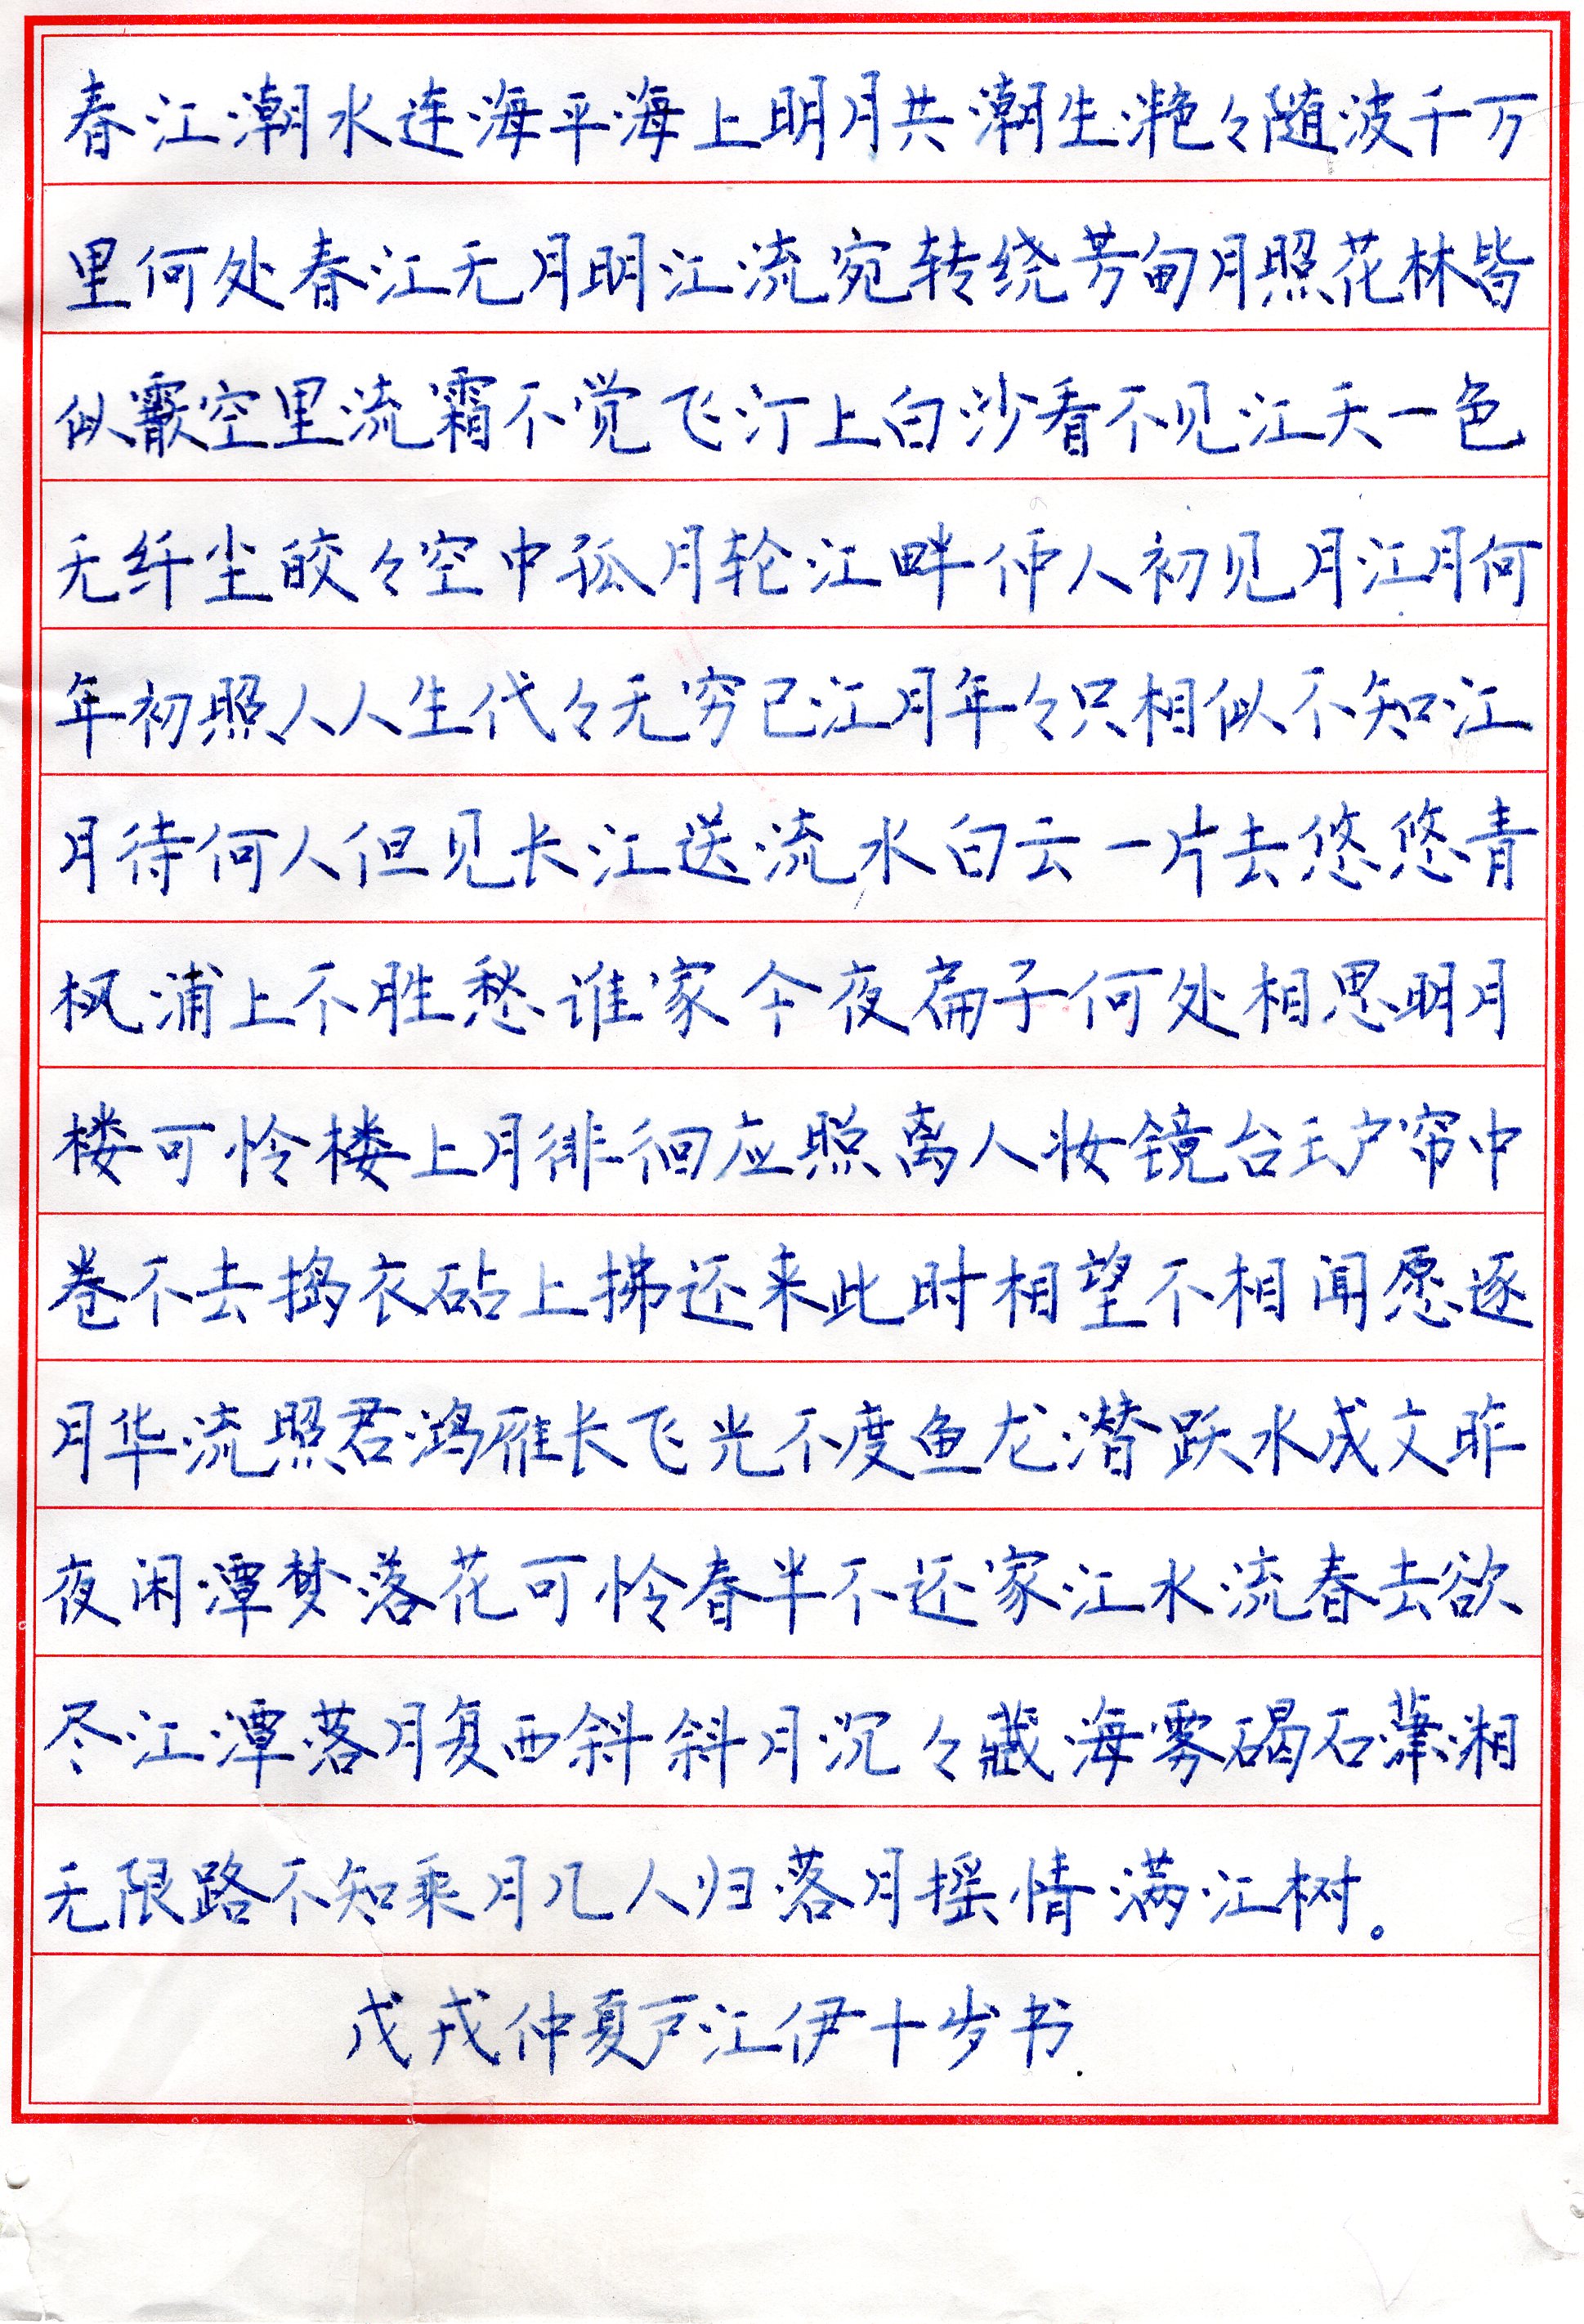 春江潮水连海平海上明月共潮生滟々随波千万
里何处春江无月明江流宛转绕芳甸月照花林皆
似霰空里流霜不觉飞汀上白沙看不见江天一色
无纤尘皎々空中孤月轮江畔人初见月江月何
年初照人人生代々无穷已江月年々只相似不知江
月待何人但见长江送流水白云一片去悠悠青
枫浦上不胜愁谁家今夜扁子何处相思明月
楼可怜楼上月徘徊应照离人妆镜台玉户帘中
卷不去捣衣砧上拂还来此时相望不相闻愿逐
月华流照君鸿雁长飞光不度鱼龙潜跃水成文昨
夜闲潭梦落花可怜春半不还家江水流春去欲
尽江潭落月复西斜斜月沉々藏海雾碣石潇湘
无限路不知乘月几人归落月摇情满江树。
戊戌仲夏江伊十岁书